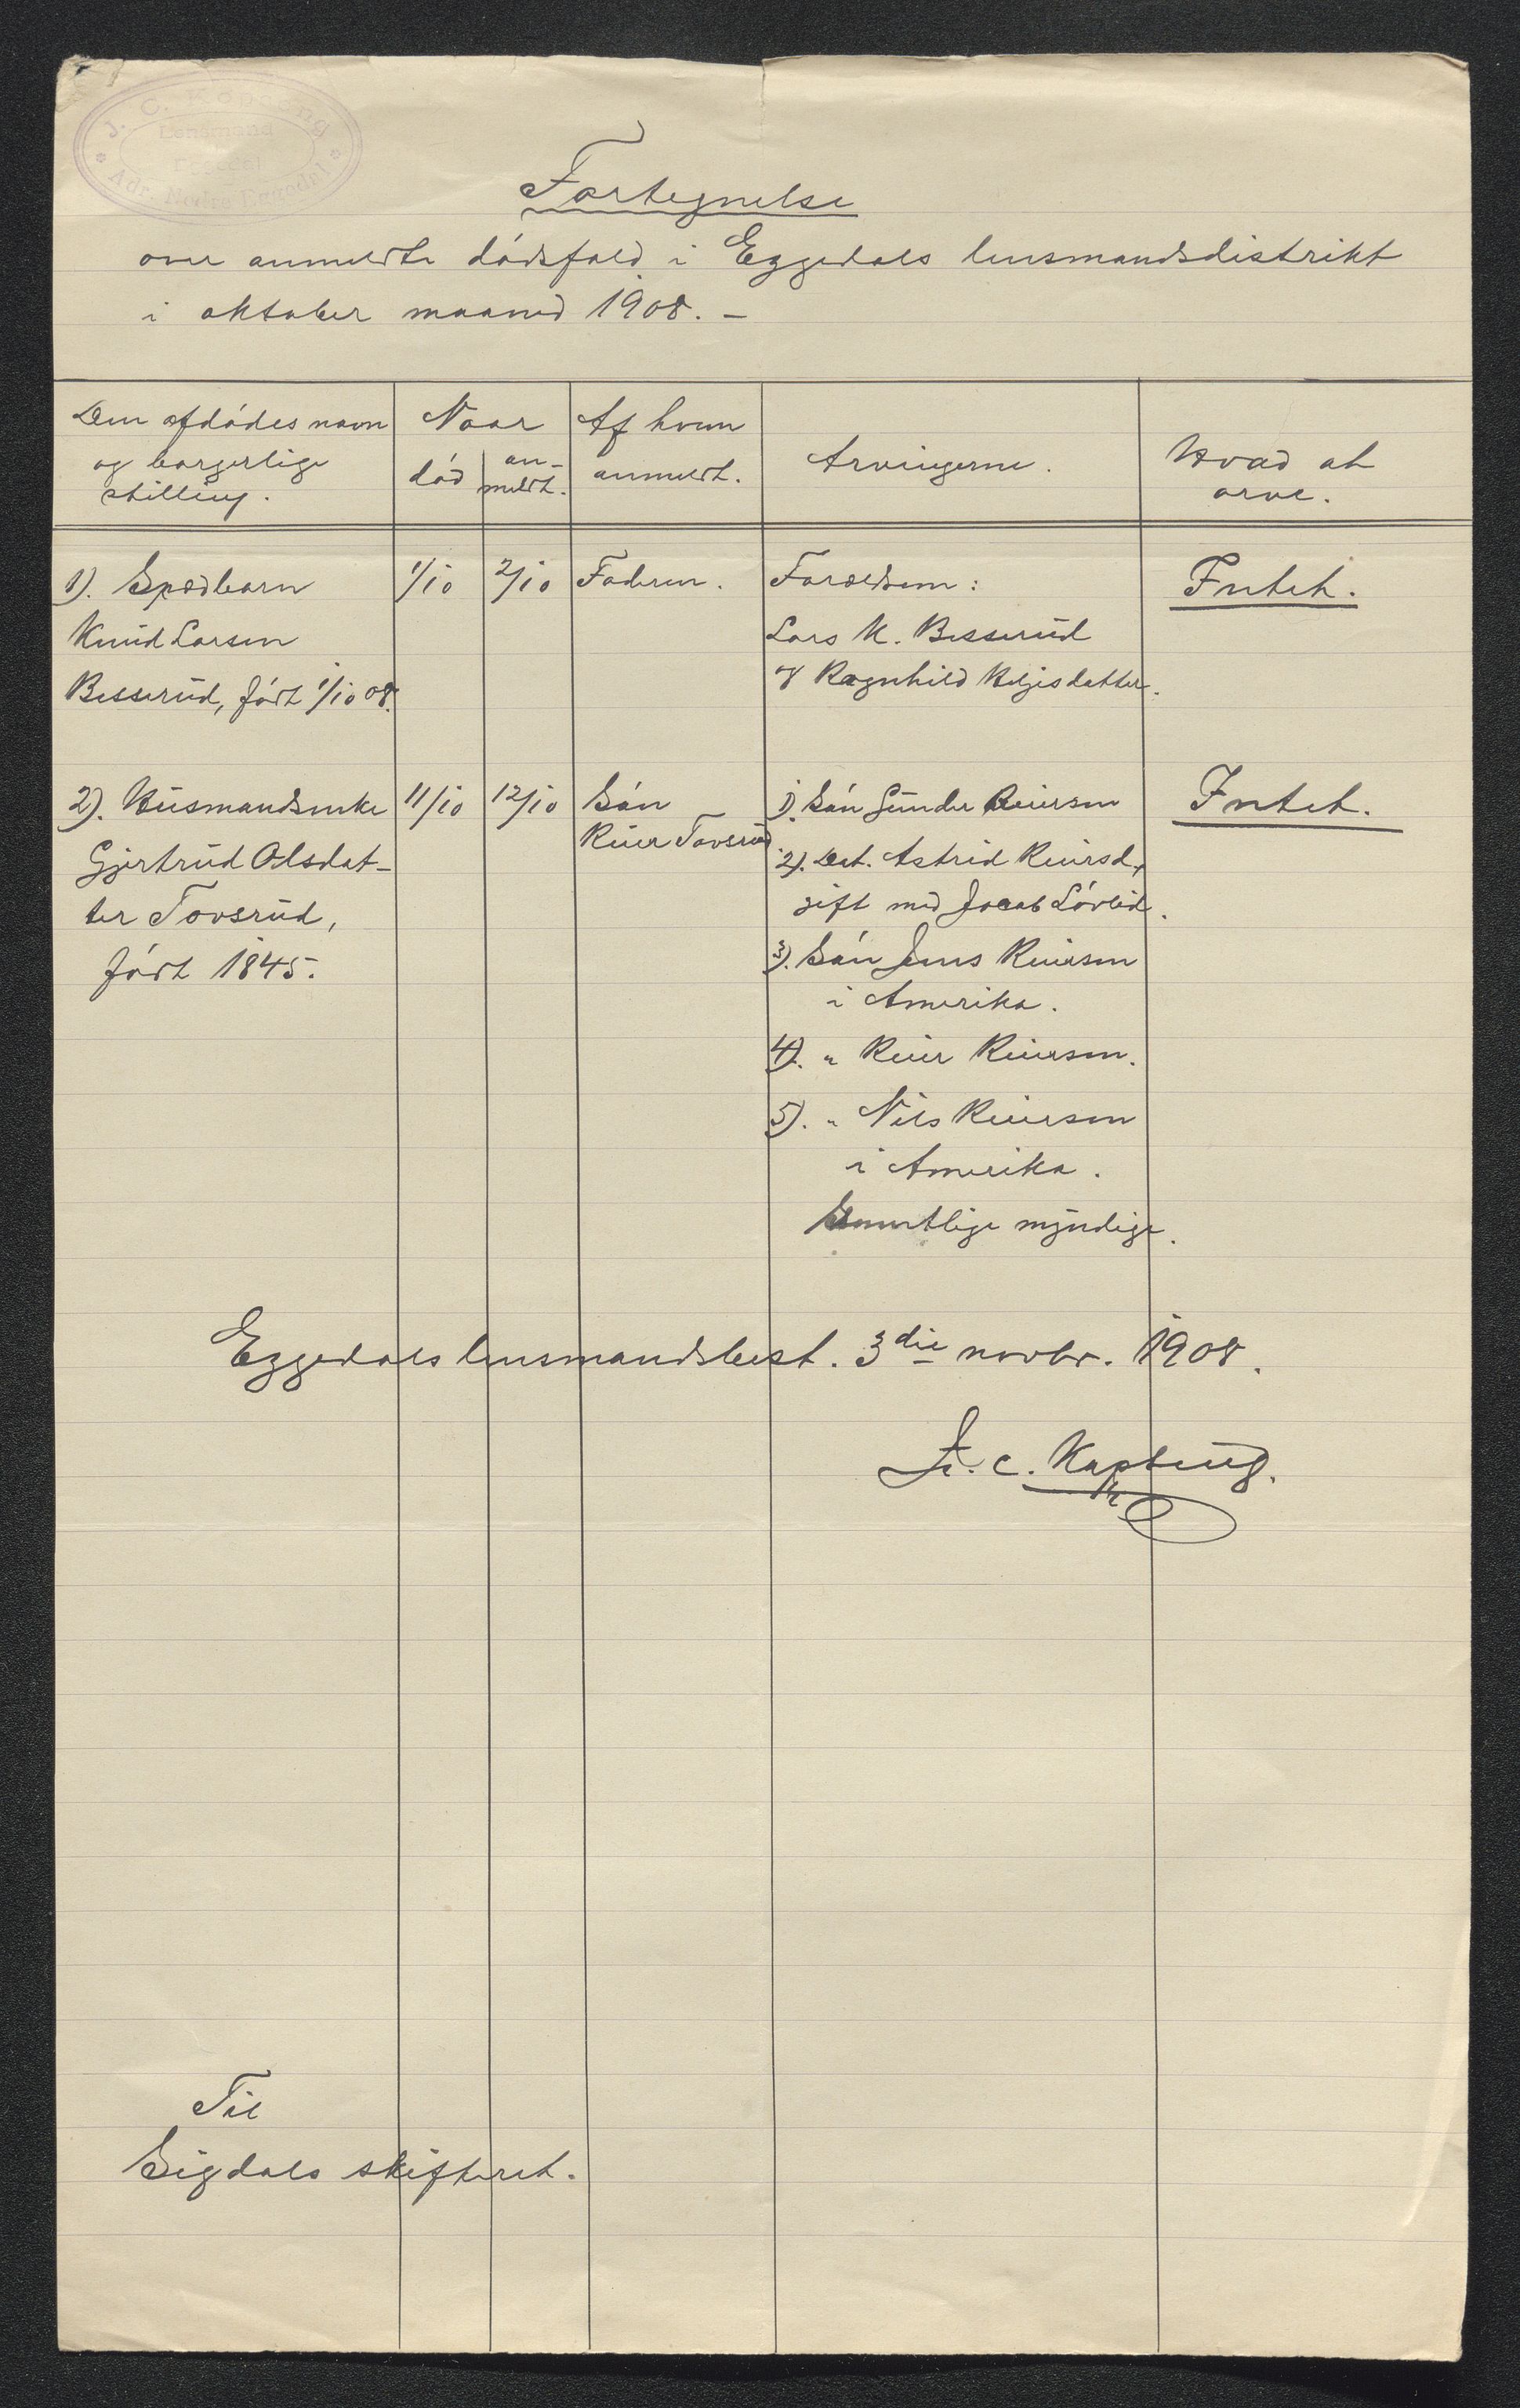 J. C. Kopseng
Lensmand
Eggedal
Adr. Nedre Eggedal
Fortegnelse
over anmeldte dødsfald i Eggedals lensmandsdistrikt
i oktober maaned 1908. –
Den afdødes navn
og borgerlige
stilling.
Naar
død
an-
meldt.
Af hvem
anmeldt.
Arvingerne.
Hvad at
arve.
1). Spædbarn 1/10 2/10 Faderen. Forældrene: Intet.
Knud Larsen Lars K. Besserud
Besserud, født 1/10 08. og Ragnhild Helgesdatter.
2). Husmandsenke 11/10 12/10 Søn 1). Søn Gunder Reiersen Intet.
Gjertrud Olsdat- Reier Tovsrud 2). Dat. Astrid Reiersd.,
ter Tovsrud, gift med Jacob Løvlid.
født 1845. 3). Søn Jens Reiersen
i Amerika.
4). " Reier Reiersen.
5). " Nils Reiersen
i Amerika.
Samtlige myndige.
Eggedals lensmandsbest. 3die novbr. 1908.
J. C. Kopseng.
Til
Sigdals skifteret.